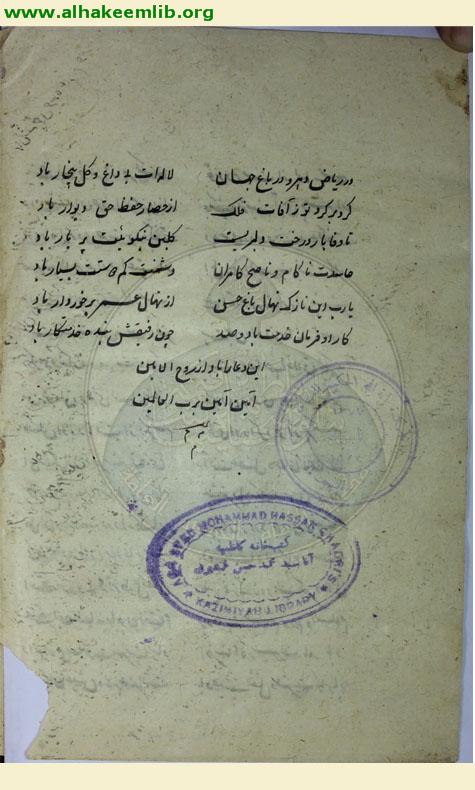 www.alhakeemlib.org
در ریاض دهر و در باغ جهان لاله ات بے داغ و گل بیخار باد
گرد بر گرد تو ز آفات فلک از حصار حفظ حق دیوار باد
تا وفا بار درخت دلبریست گلبن نیکوئیت پر بار باد
حاسدت ناکام و ناصح کامران دشمنت کم دوستت بسیار باد
یارب این نازک نهال باغ حسن از نهال عمر برخوردار باد
کار او فرمان خدمت باد و صد چون رفیقش بنده خدمتگار باد
این دعا را باد از روح الامین
آمین آمین یرب العالمین
AGA SYED MOHAMMAD HASSAN
کتبخانه کاظمیه
آقا سید محمد حسن
KAZIMIYAH LIBRARY